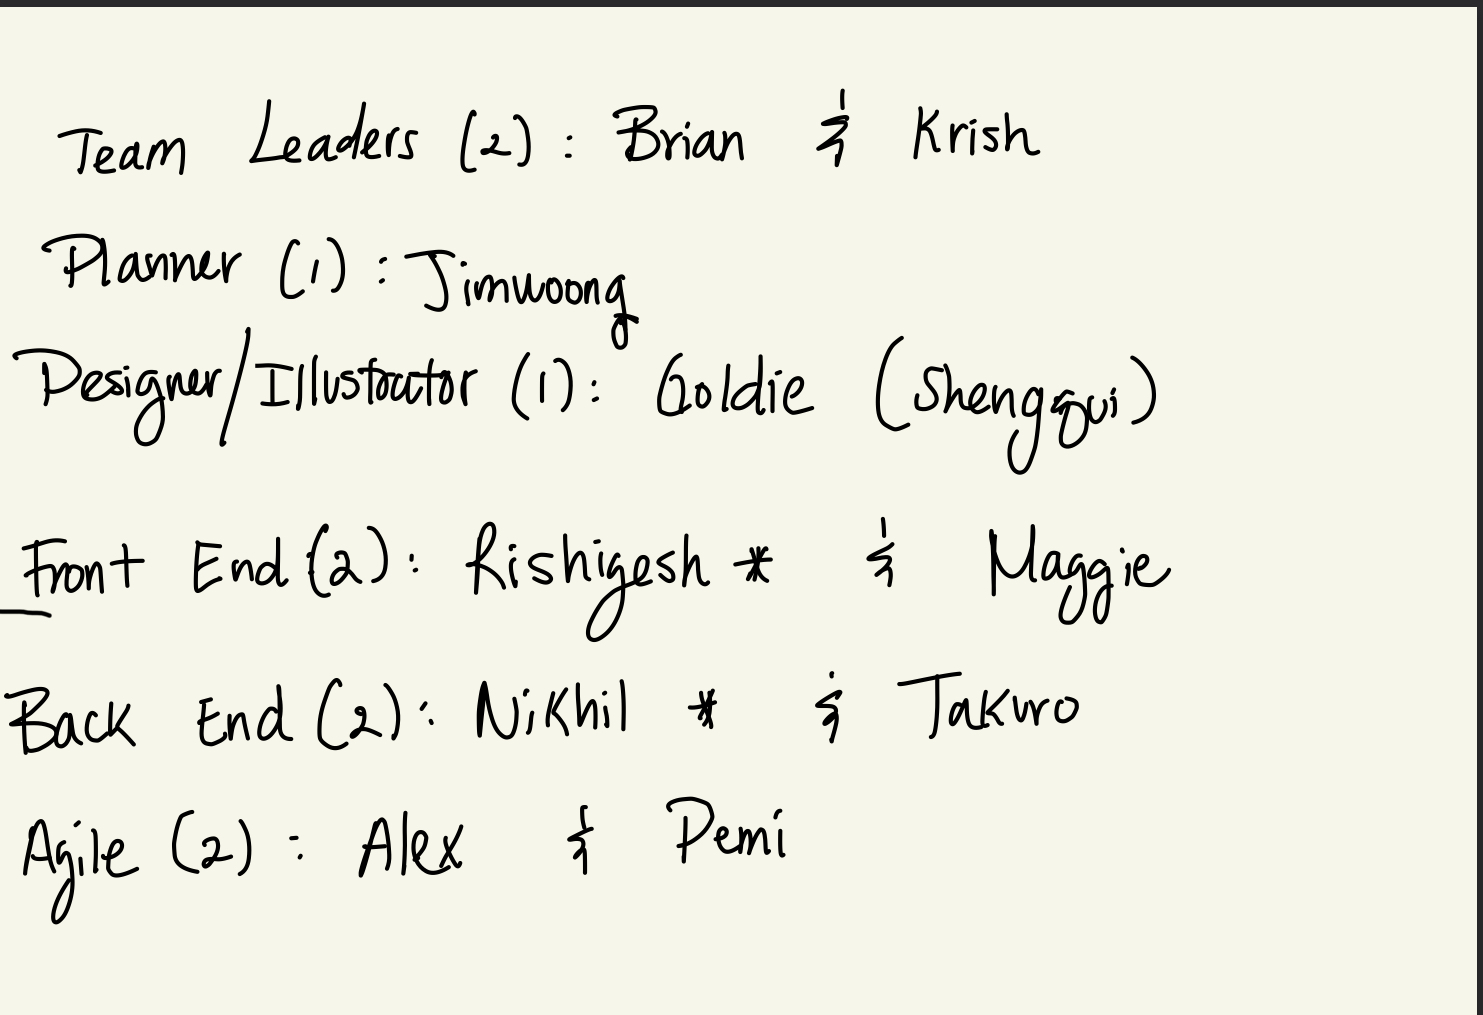 Team Leaders (2) : Brian & Krish
Planner (1) : Jimwoong
Designer/Illustrator (1): Goldie (Shengqui)
Front End (2): Rishigesh * & Maggie
Back End (2): Nikhil * & Takuro
Agile (2) : Alex & Pemi